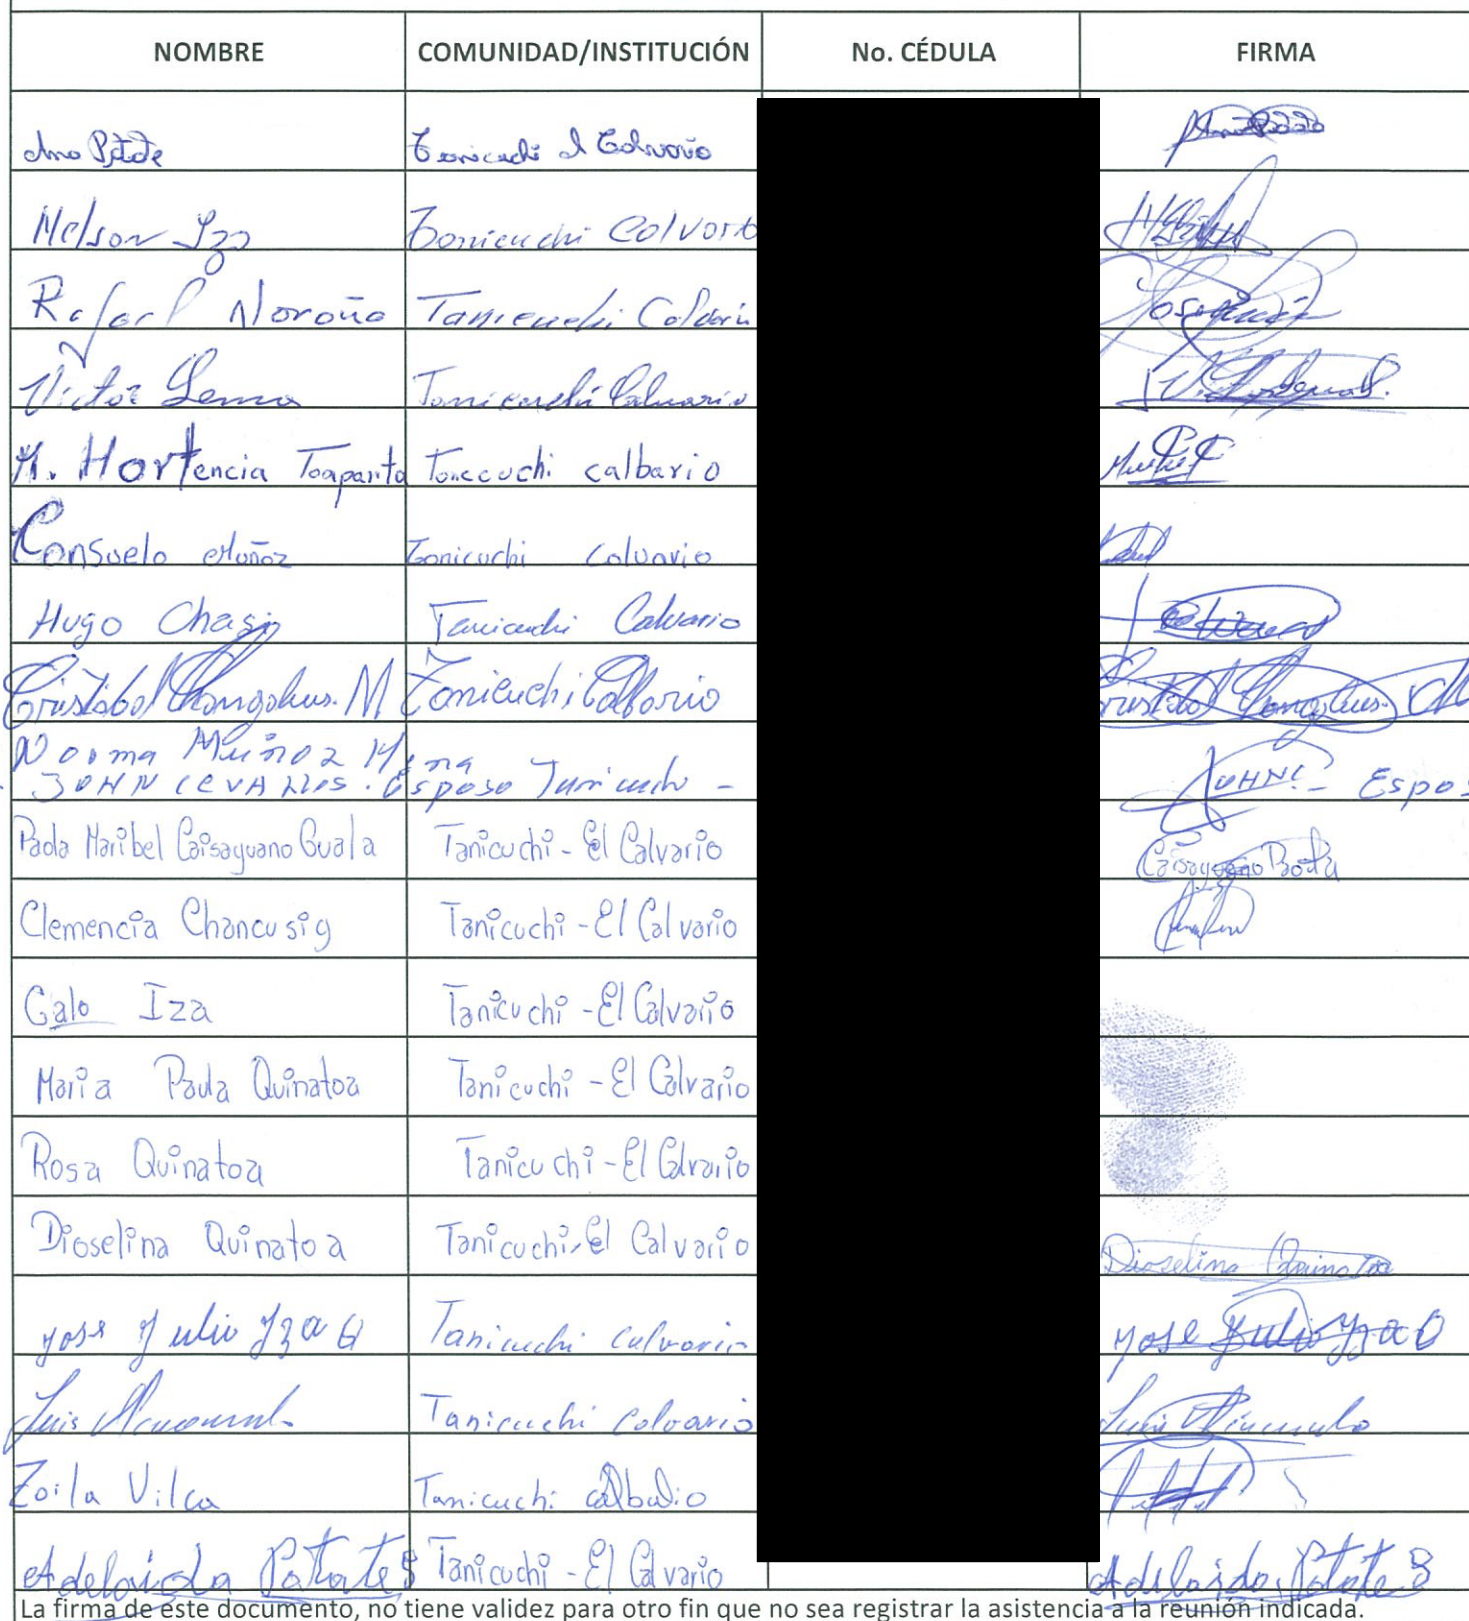 NOMBRE COMUNIDAD/INSTITUCIÓN No. CÉDULA FIRMA
Ana Patate Tanicuchi el Calvario Ana Patate
Nelson Iza Tanicuchi Calvario
Rafael Noroña Tanicuchi Calvario
Victor Lema Tanicuchi Calvario
M. Hortencia Toapanta Tanicuchi calbario
Consuelo Muñoz Tanicuchi Calvario
Hugo Chasi Tanicuchi Calvario
Cristobal M Tanicuchi Calbario Cristobal
Norma Muñoz Mena
JOHN CEVALLOS. Esposo Tanicuchi - JOHN C - Espos
Paola Maribel Caisaguano Guala Tanicuchi - El Calvario Caisaguano Paola
Clemencia Chancusig Tanicuchi - El Calvario
Galo Iza Tanicuchi - El Calvario
Maria Paula Quinatoa Tanicuchi - El Calvario
Rosa Quinatoa Tanicuchi - El Calvario
Dioselina Quinatoa Tanicuchi - El Calvario Dioselina Quinatoa
Jose Julio Yza Q Tanicuchi Calvario Jose Julio Yza Q
Luis Tanicuchi Calvario Luis
Zoila Vilca Tanicuchi
Adelaida Patate S Tanicuchi - El Calvario Adelaida Patate S
La firma de este documento, no tiene validez para otro fin que no sea registrar la asistencia a la reunión indicada.